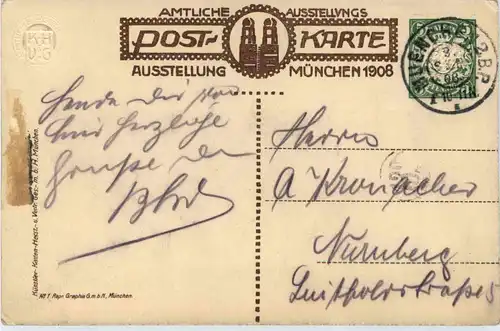 AMTLICHE AUSSTELLUNGS
POST-KARTE
AUSSTELLUNG MÜNCHEN 1908
MUENCHEN 2 B.P.
Sende Dir von
hier herzliche
Grüße
Herrn
A Kronacher
Nürnberg
Luitpoldstraße 5
Künstler-Karten-Herst.- u. Vertr. Ges. m. b. H. München.
Graphia G.m.b.H., München.